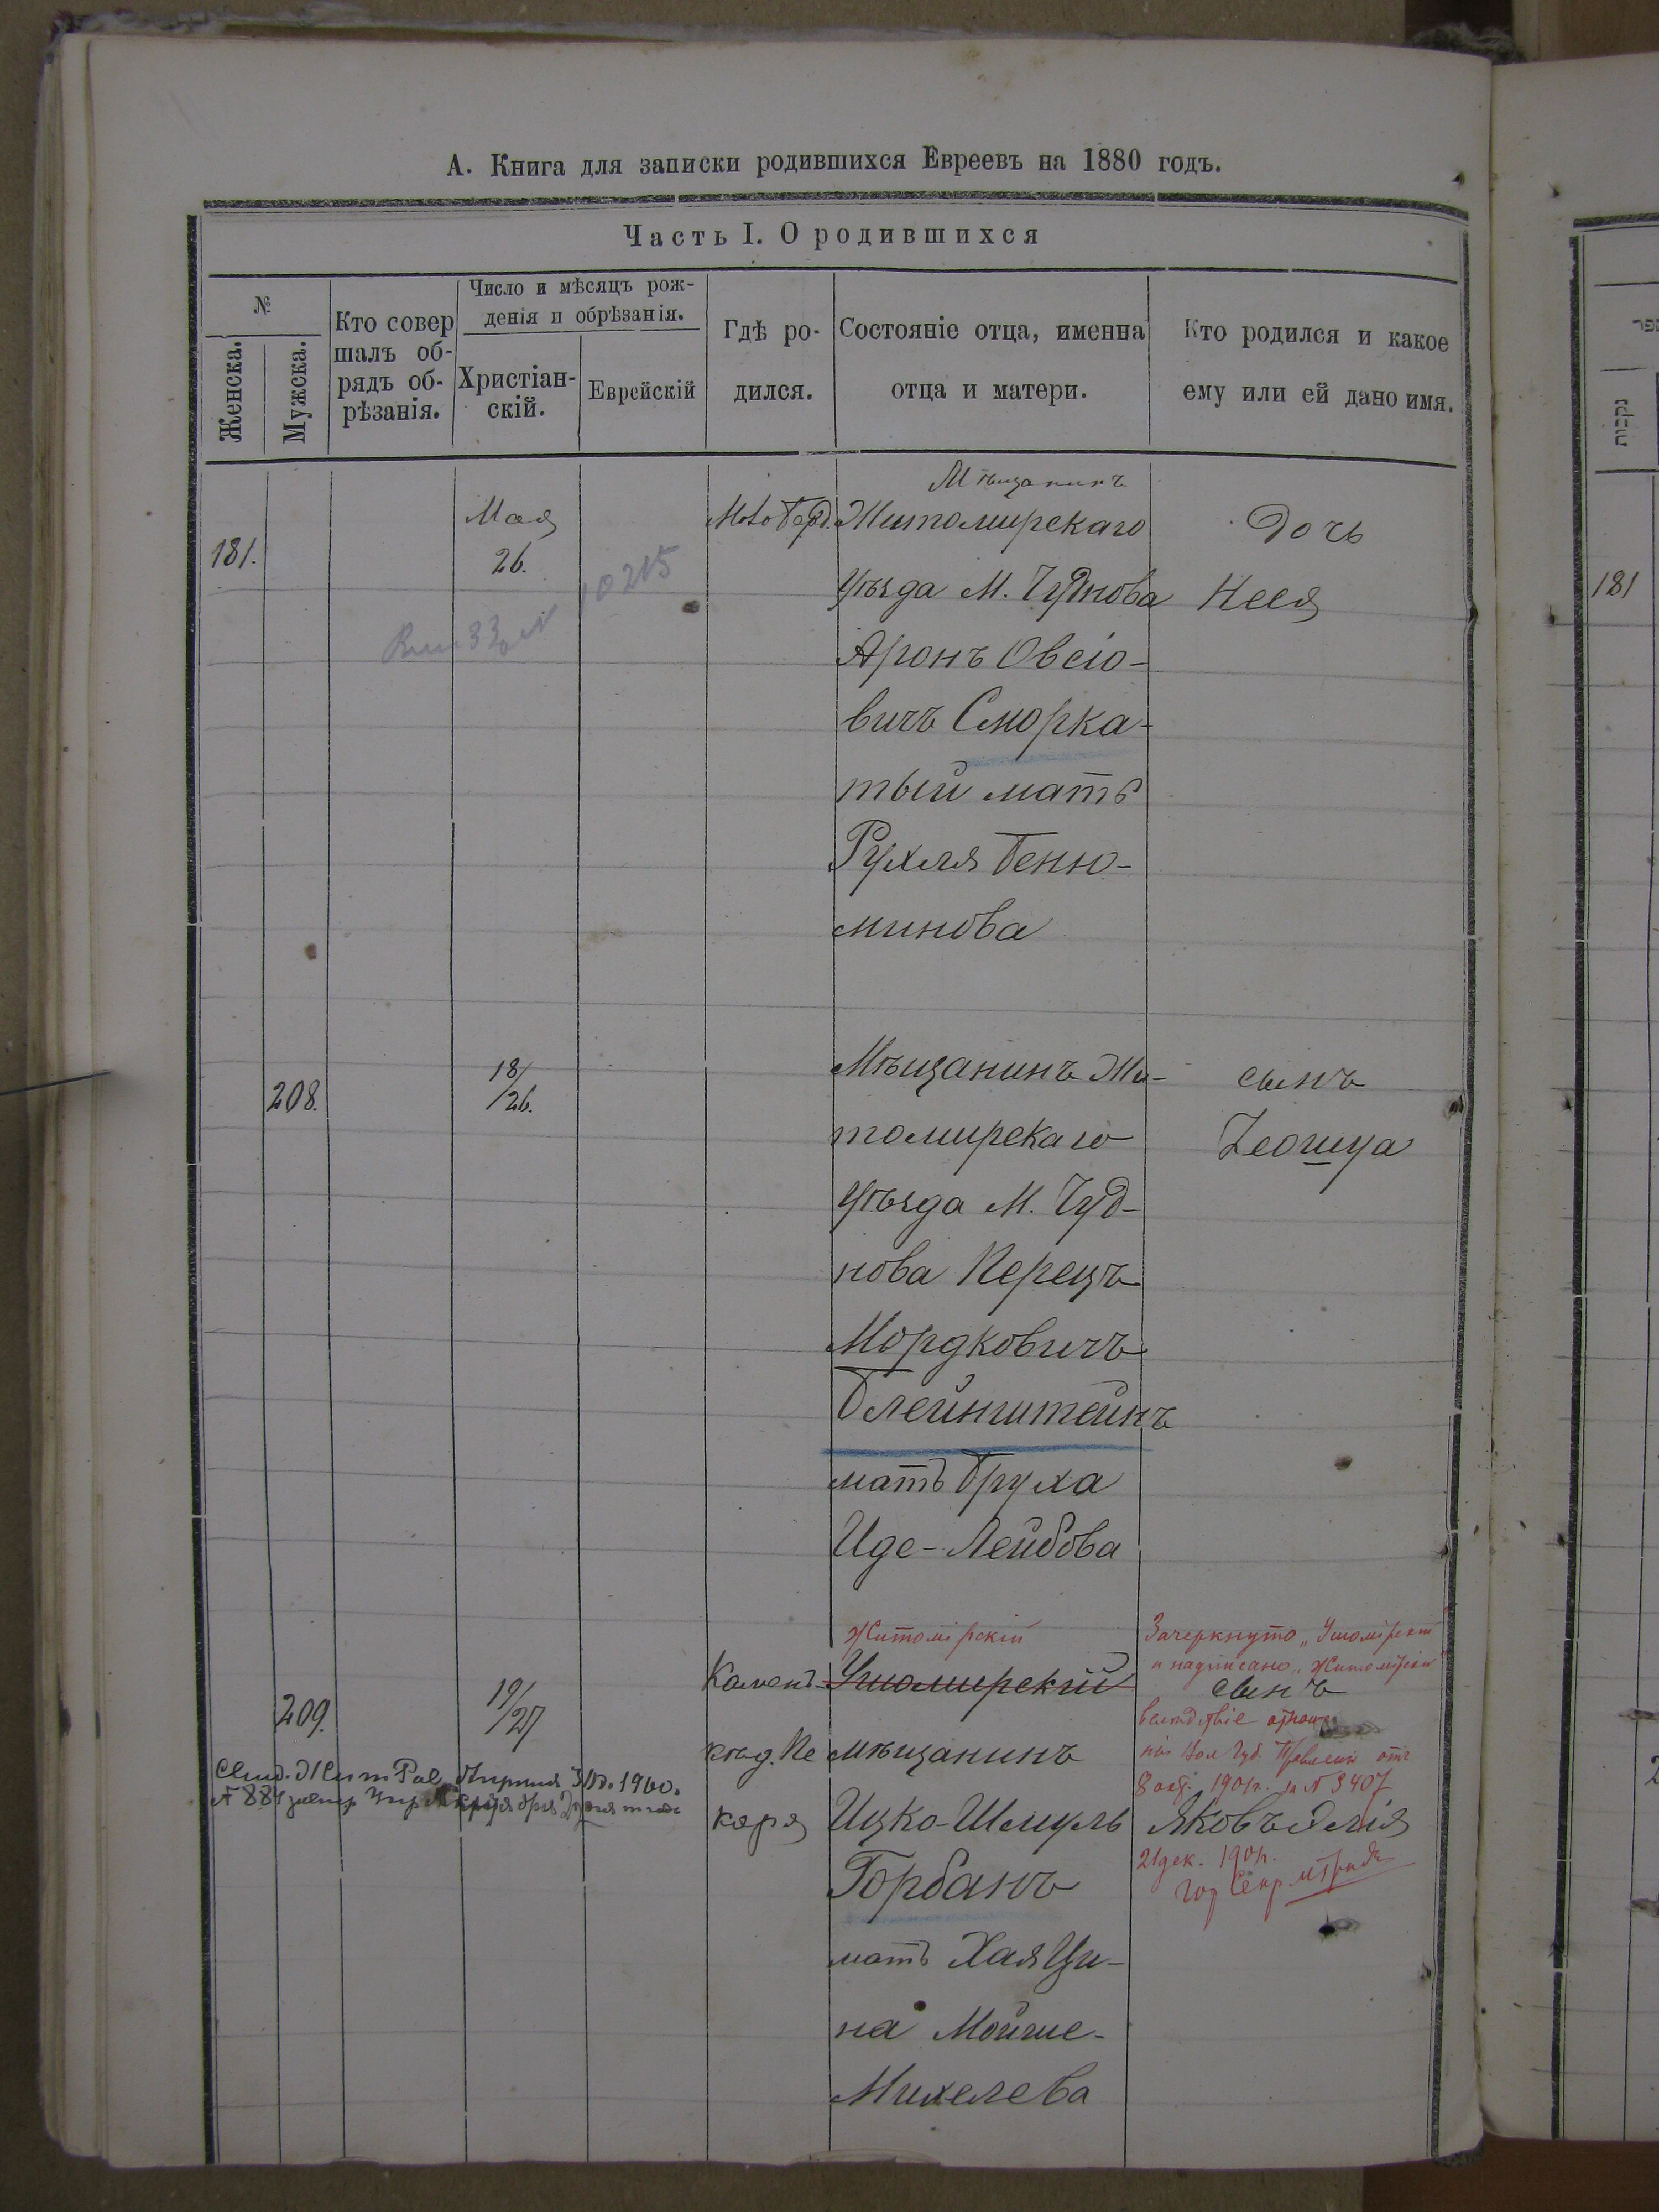 А. Книга для записки родившихся Евреевъ на 1880 годъ.
Часть I. О родившихся
№
Женска.
Мужска.
Кто совер
шалъ об-
рядъ об-
рѣзанія.
Число и мѣсяцъ рож-
денія и обрѣзанія.
Христіан-
скій.
Еврейскій
Гдѣ ро-
дился.
Состояніе отца, именна
отца и матери.
Кто родился и какое
ему или ей дано имя.
181.
Мая
26.
10215
Мѣщанинъ
Житомирскаго
уѣзда М. Чуднова
Аронъ Овсіо-
вичъ Сморка-
тый мать
Рухля Беню-
минова
Дочь
Нехя
208.
18/
/26.
Мѣщанинъ Жи-
томирскаго
уѣзда М. Чуд-
нова Перецъ
Мордковичъ
Блейнштейнъ
мать Бруха
Иде-Лейбова
сынъ
Іеошуа
209.
19/
/27
Камен.
каря
Житомірскій
Ушомирскій
мѣщанинъ
Ицко-Шмуль
Горбанъ
мать Хая Ци-
на Мойше-
Михелева
Зачеркнуто „Ушомірскій
и надписано „Житомірскій"
сынъ
вслѣдствіе
Вол. Губ. Правленія отъ
8 окт. 1901г. за № 3407
Яковъ Элія
21 дек. 1901г.
Гор Секр.
1900.
№ 884
181
נקבות